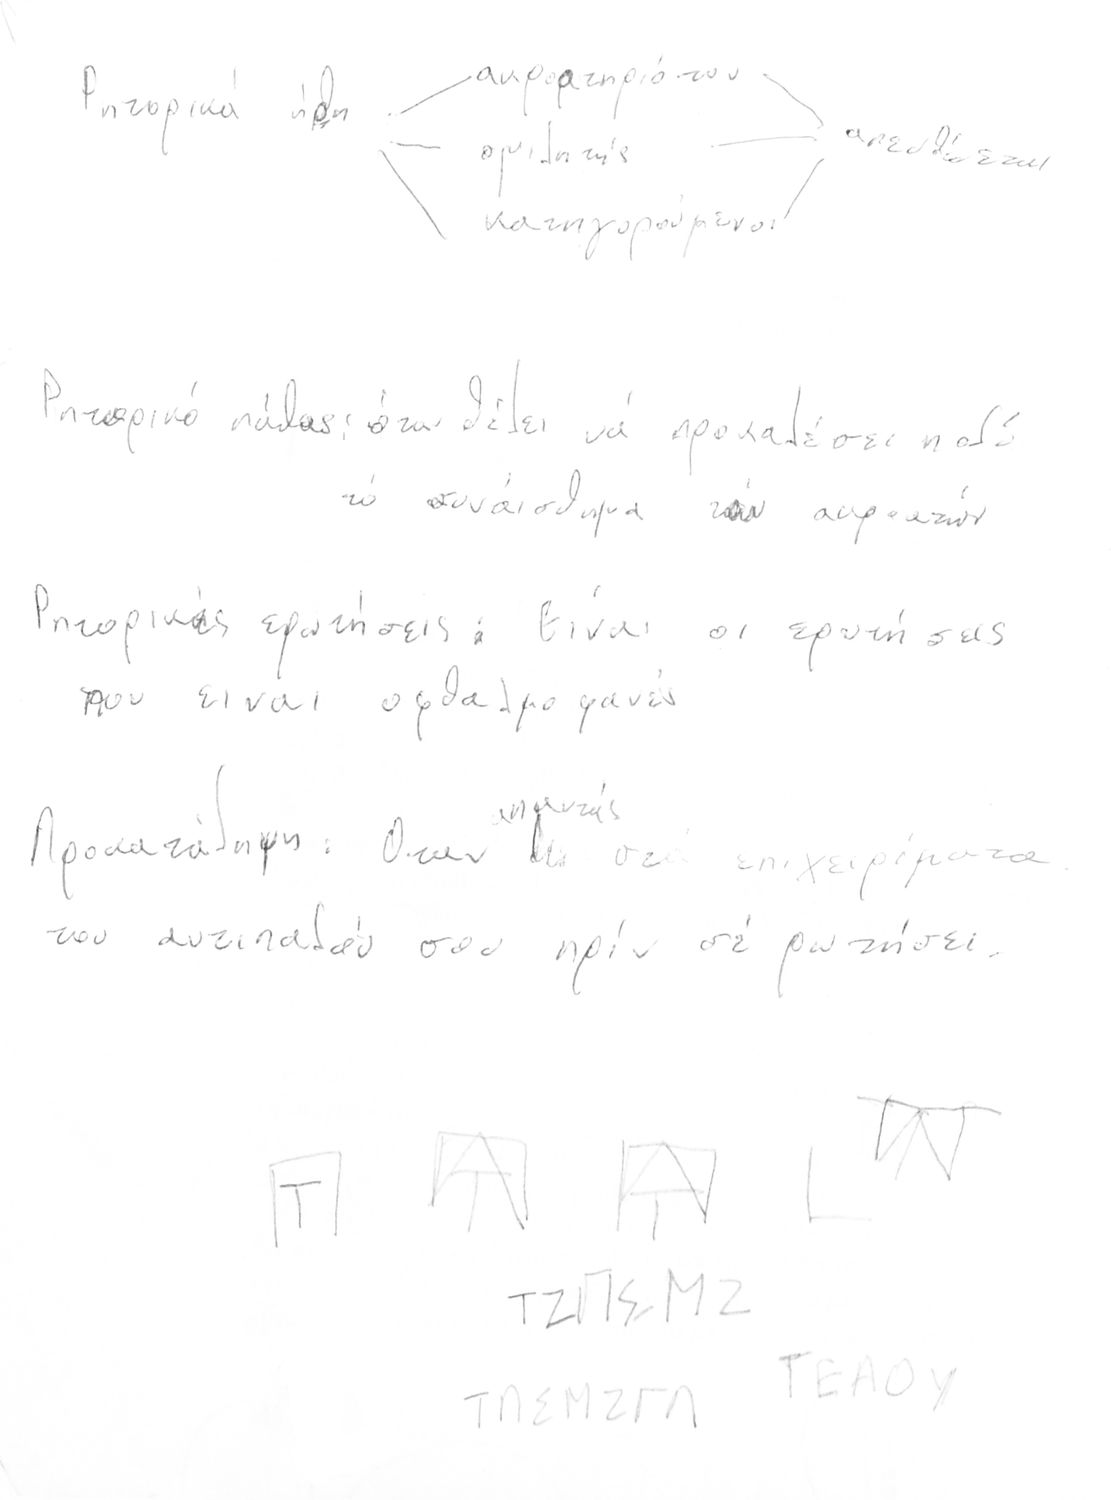 Ρητορικά ήθη
ακροατηριό του
ομιλητής
κατηγορούμενοι
απευθύνεται
Ρητορικό πάθος: όταν θέλει νά προκαλέσει πολύ
τό συνάισθημα των ακροατών
Ρητορικές ερωτήσεις: Είναι οι ερωτήσεις
που ειναι οφθαλμοφανές
Προκατάληψη: Οταν απαντάς στα επιχειρήματα
του αντιπαλού σου πρίν σέ ρωτήσει.
ΤΖΠΣΜΖ
ΤΕΛΟΥ
ΤΠΣΜΖΓΛ